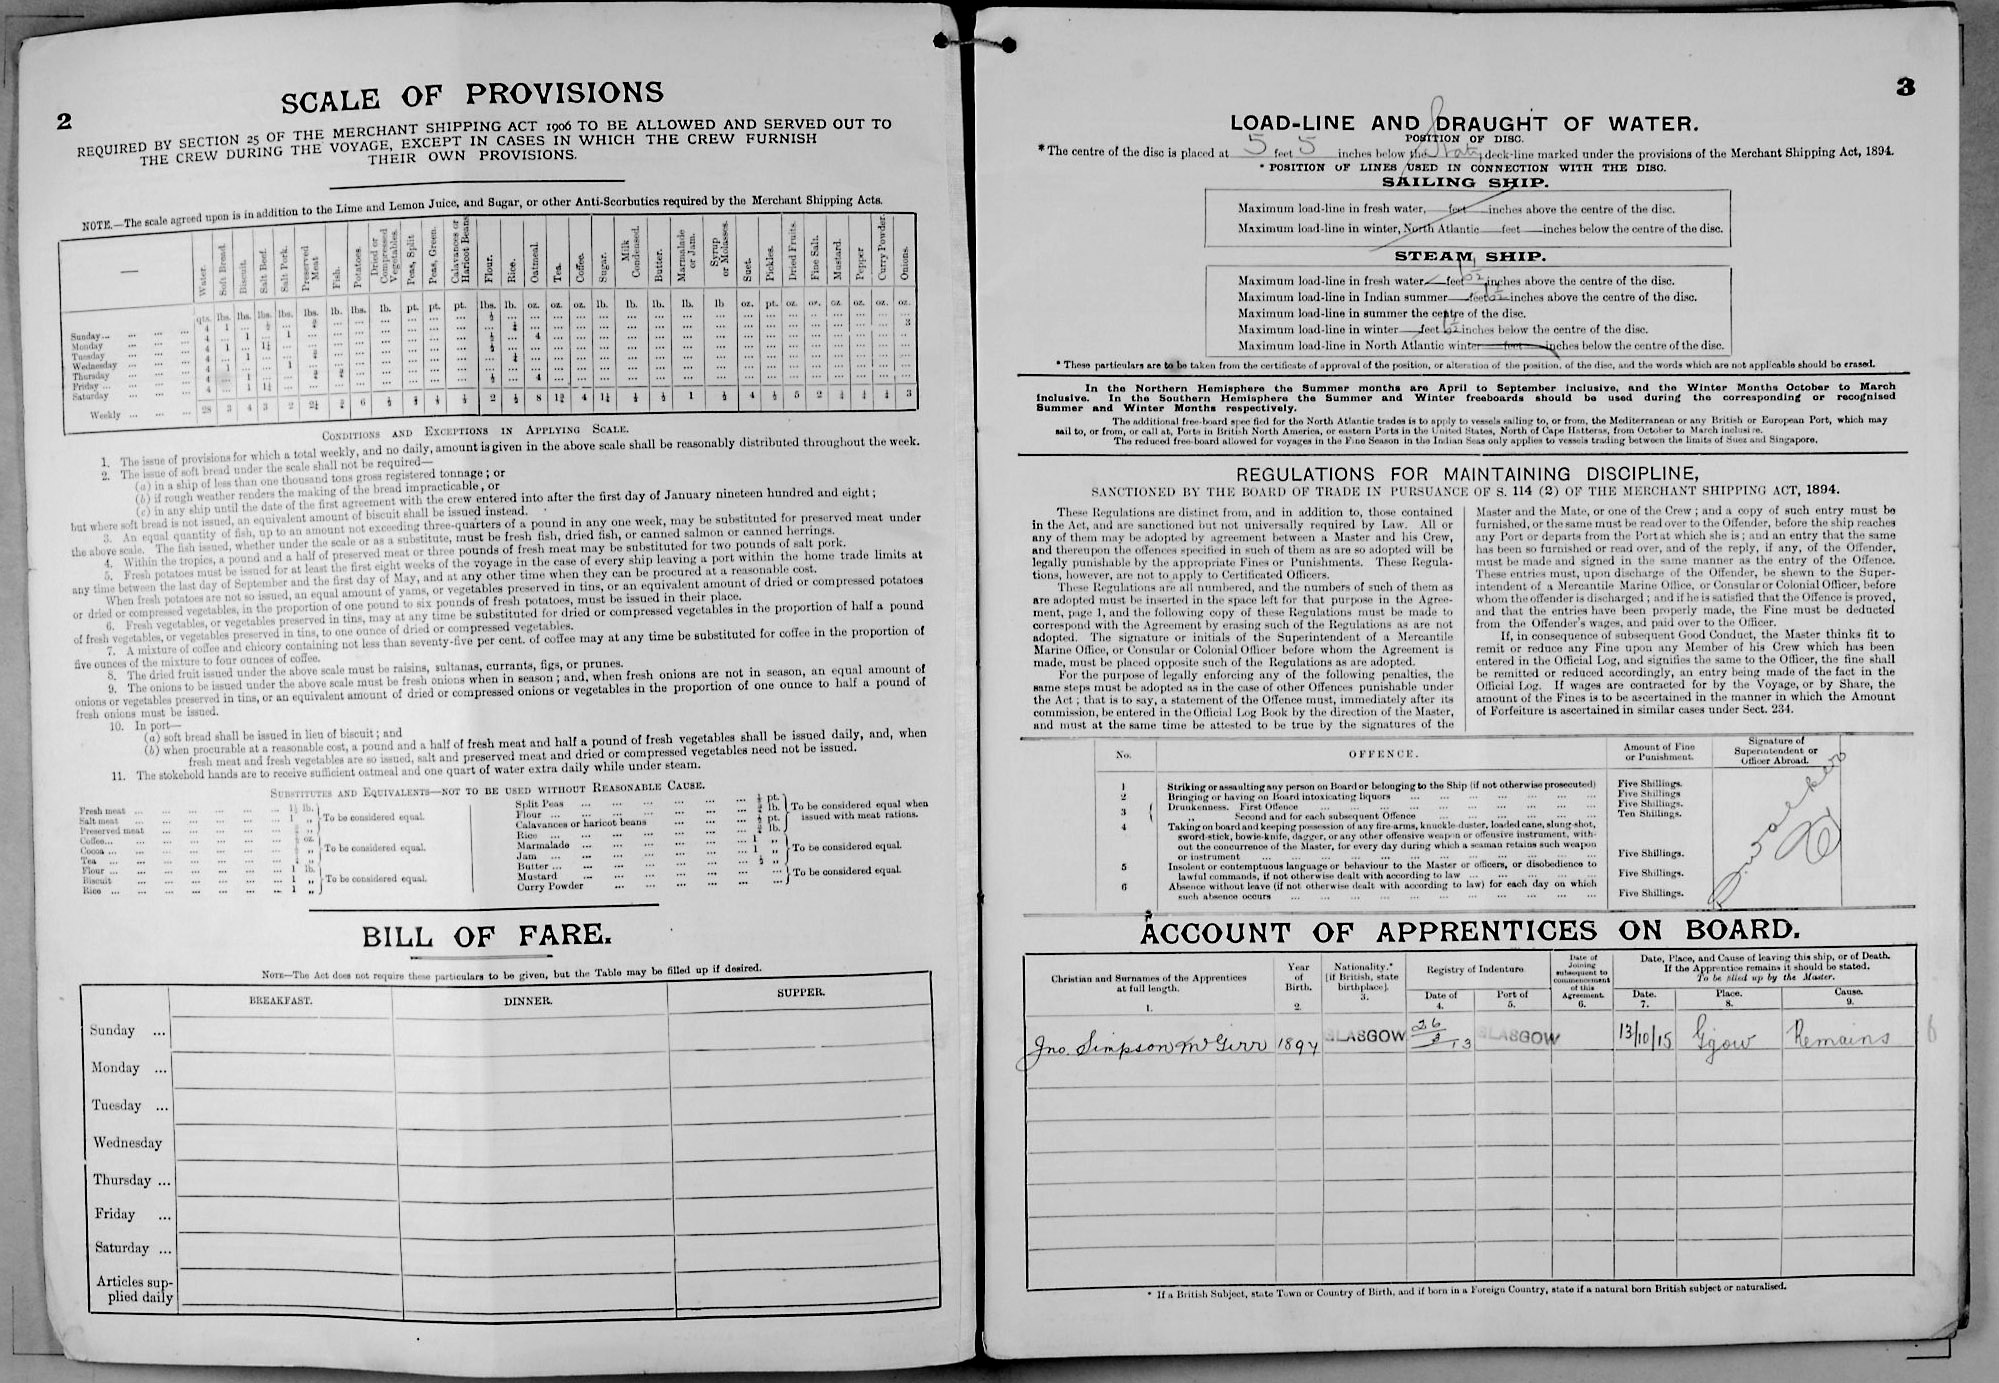 2
SCALE OF PROVISIONS
REQUIRED BY SECTION 25 OF THE MERCHANT SHIPPING ACT 1906 TO BE ALLOWED AND SERVED OUT TO
THE CREW DURING THE VOYAGE, EXCEPT IN CASES IN WHICH THE CREW FURNISH
THEIR OWN PROVISIONS.
NOTE.—The scale agreed upon is in addition to the Lime and Lemon Juice, and Sugar, or other Anti-Scorbutics required by the Merchant Shipping Acts.
— Water. Soft Bread. Biscuit. Salt Beef. Salt Pork. Preserved Meat Fish. Potatoes. Dried or Compressed Vegetables. Peas, Split Peas, Green. Calavances or Haricot Beans Flour. Rice. Oatmeal. Tea. Coffee. Sugar. Milk Condensed. Butter. Marmalade or Jam. Syrup or Molasses. Suet. Pickles. Dried Fruits. Fine Salt. Mustard. Pepper Curry Powder. Onions.
qts. lbs. lbs. lbs. lbs. lbs. lb. lbs. lb. pt. pt. pt. lbs. lb. oz. oz. oz. lb. lb. lb. lb. lb oz. pt. oz. oz. oz. oz. oz. oz.
Sunday ...
Monday
Tuesday
Wednesday
Thursday
Friday ...
Saturday
Weekly ... 28 3 4 3 2 2¼ ¾ 6 ½ 2 ½ 8 1¾ 4 1¼ 1 ½ 4 ½ 5 2 ¼ ¼ ¼ 3
CONDITIONS AND EXCEPTIONS IN APPLYING SCALE.
1. The issue of provisions for which a total weekly, and no daily, amount is given in the above scale shall be reasonably distributed throughout the week.
2. The issue of soft bread under the scale shall not be required—
(a) in a ship of less than one thousand tons gross registered tonnage; or
(b) if rough weather renders the making of the bread impracticable, or
(c) in any ship until the date of the first agreement with the crew entered into after the first day of January nineteen hundred and eight;
but where soft bread is not issued, an equivalent amount of biscuit shall be issued instead.
3. An equal quantity of fish, up to an amount not exceeding three-quarters of a pound in any one week, may be substituted for preserved meat under
the above scale. The fish issued, whether under the scale or as a substitute, must be fresh fish, dried fish, or canned salmon or canned herrings.
4. Within the tropics, a pound and a half of preserved meat or three pounds of fresh meat may be substituted for two pounds of salt pork.
5. Fresh potatoes must be issued for at least the first eight weeks of the voyage in the case of every ship leaving a port within the home trade limits at
any time between the last day of September and the first day of May, and at any other time when they can be procured at a reasonable cost.
When fresh potatoes are not so issued, an equal amount of yams, or vegetables preserved in tins, or an equivalent amount of dried or compressed potatoes
or dried or compressed vegetables, in the proportion of one pound to six pounds of fresh potatoes, must be issued in their place.
6. Fresh vegetables, or vegetables preserved in tins, may at any time be substituted for dried or compressed vegetables in the proportion of half a pound
of fresh vegetables, or vegetables preserved in tins, to one ounce of dried or compressed vegetables.
7. A mixture of coffee and chicory containing not less than seventy-five per cent. of coffee may at any time be substituted for coffee in the proportion of
five ounces of the mixture to four ounces of coffee.
8. The dried fruit issued under the above scale must be raisins, sultanas, currants, figs, or prunes.
9. The onions to be issued under the above scale must be fresh onions when in season; and, when fresh onions are not in season, an equal amount of
onions or vegetables preserved in tins, or an equivalent amount of dried or compressed onions or vegetables in the proportion of one ounce to half a pound of
fresh onions must be issued.
10. In port—
(a) soft bread shall be issued in lieu of biscuit; and
(b) when procurable at a reasonable cost, a pound and a half of fresh meat and half a pound of fresh vegetables shall be issued daily, and, when
fresh meat and fresh vegetables are so issued, salt and preserved meat and dried or compressed vegetables need not be issued.
11. The stokehold hands are to receive sufficient oatmeal and one quart of water extra daily while under steam.
SUBSTITUTES AND EQUIVALENTS—NOT TO BE USED WITHOUT REASONABLE CAUSE.
Fresh meat ... 1½ lb.
Salt meat ... 1 „ To be considered equal.
Preserved meat
Coffee...
Cocoa ... To be considered equal.
Tea ...
Flour ... 1 lb.
Biscuit 1 „ To be considered equal.
Rice ... 1 „
Split Peas ... pt.
Flour ... lb. To be considered equal when
Calavances or haricot beans pt. issued with meat rations.
Rice ... lb.
Marmalade 1 „
Jam ... 1 „ To be considered equal.
Butter ... ½ „
Mustard ... To be considered equal.
Curry Powder
BILL OF FARE.
NOTE—The Act does not require these particulars to be given, but the Table may be filled up if desired.
BREAKFAST. DINNER. SUPPER.
Sunday ...
Monday ...
Tuesday ...
Wednesday
Thursday ...
Friday ...
Saturday ...
Articles sup-
plied daily
3
LOAD-LINE AND DRAUGHT OF WATER.
POSITION OF DISC.
* The centre of the disc is placed at 5 feet 5 inches below the deck-line marked under the provisions of the Merchant Shipping Act, 1894.
* POSITION OF LINES USED IN CONNECTION WITH THE DISC.
SAILING SHIP.
Maximum load-line in fresh water, feet inches above the centre of the disc.
Maximum load-line in winter, North Atlantic feet inches below the centre of the disc.
STEAM SHIP.
Maximum load-line in fresh water feet inches above the centre of the disc.
Maximum load-line in Indian summer feet inches above the centre of the disc.
Maximum load-line in summer the centre of the disc.
Maximum load-line in winter feet inches below the centre of the disc.
Maximum load-line in North Atlantic winter feet inches below the centre of the disc.
* These particulars are to be taken from the certificate of approval of the position, or alteration of the position, of the disc, and the words which are not applicable should be erased.
In the Northern Hemisphere the Summer months are April to September inclusive, and the Winter Months October to March
inclusive. In the Southern Hemisphere the Summer and Winter freeboards should be used during the corresponding or recognised
Summer and Winter Months respectively.
The additional free-board specified for the North Atlantic trades is to apply to vessels sailing to, or from, the Mediterranean or any British or European Port, which may
sail to, or from, or call at, Ports in British North America, or eastern Ports in the United States, North of Cape Hatteras, from October to March inclusive.
The reduced free-board allowed for voyages in the Fine Season in the Indian Seas only applies to vessels trading between the limits of Suez and Singapore.
REGULATIONS FOR MAINTAINING DISCIPLINE,
SANCTIONED BY THE BOARD OF TRADE IN PURSUANCE OF S. 114 (2) OF THE MERCHANT SHIPPING ACT, 1894.
These Regulations are distinct from, and in addition to, those contained
in the Act, and are sanctioned but not universally required by Law. All or
any of them may be adopted by agreement between a Master and his Crew,
and thereupon the offences specified in such of them as are so adopted will be
legally punishable by the appropriate Fines or Punishments. These Regula-
tions, however, are not to apply to Certificated Officers.
These Regulations are all numbered, and the numbers of such of them as
are adopted must be inserted in the space left for that purpose in the Agree-
ment, page 1, and the following copy of these Regulations must be made to
correspond with the Agreement by erasing such of the Regulations as are not
adopted. The signature or initials of the Superintendent of a Mercantile
Marine Office, or Consular or Colonial Officer before whom the Agreement is
made, must be placed opposite such of the Regulations as are adopted.
For the purpose of legally enforcing any of the following penalties, the
same steps must be adopted as in the case of other Offences punishable under
the Act; that is to say, a statement of the Offence must, immediately after its
commission, be entered in the Official Log Book by the direction of the Master,
and must at the same time be attested to be true by the signatures of the
Master and the Mate, or one of the Crew; and a copy of such entry must be
furnished, or the same must be read over to the Offender, before the ship reaches
any Port or departs from the Port at which she is; and an entry that the same
has been so furnished or read over, and of the reply, if any, of the Offender,
must be made and signed in the same manner as the entry of the Offence.
These entries must, upon discharge of the Offender, be shewn to the Super-
intendent of a Mercantile Marine Office, or Consular or Colonial Officer, before
whom the offender is discharged; and if he is satisfied that the Offence is proved,
and that the entries have been properly made, the Fine must be deducted
from the Offender's wages, and paid over to the Officer.
If, in consequence of subsequent Good Conduct, the Master thinks fit to
remit or reduce any Fine upon any Member of his Crew which has been
entered in the Official Log, and signifies the same to the Officer, the fine shall
be remitted or reduced accordingly, an entry being made of the fact in the
Official Log. If wages are contracted for by the Voyage, or by Share, the
amount of the Fines is to be ascertained in the manner in which the Amount
of Forfeiture is ascertained in similar cases under Sect. 234.
No. OFFENCE. Amount of Fine or Punishment. Signature of Superintendent or Officer Abroad.
1 Striking or assaulting any person on Board or belonging to the Ship (if not otherwise prosecuted) Five Shillings.
2 Bringing or having on Board intoxicating liquors ... Five Shillings
3 Drunkenness. First Offence ... Five Shillings.
„ Second and for each subsequent Offence ... Ten Shillings.
4 Taking on board and keeping possession of any fire-arms, knuckle-duster, loaded cane, slung-shot,
sword-stick, bowie-knife, dagger, or any other offensive weapon or offensive instrument, with-
out the concurrence of the Master, for every day during which a seaman retains such weapon
or instrument ... Five Shillings.
5 Insolent or contemptuous language or behaviour to the Master or officers, or disobedience to
lawful commands, if not otherwise dealt with according to law ... Five Shillings.
6 Absence without leave (if not otherwise dealt with according to law) for each day on which
such absence occurs ... Five Shillings.
ACCOUNT OF APPRENTICES ON BOARD.
Christian and Surnames of the Apprentices at full length. 1. Year of Birth. 2. Nationality.* [if British, state birthplace]. 3. Registry of Indenture Date of 4. Port of 5. Date of Joining subsequent to commencement of this Agreement. 6. Date, Place, and Cause of leaving this ship, or of Death. If the Apprentice remains it should be stated. To be filed up by the Master. Date. 7. Place. 8. Cause. 9.
Jno. Simpson McGirr 1897 GLASGOW 26/3/13 GLASGOW 13/10/15 Ggow Remains
* If a British Subject, state Town or Country of Birth, and if born in a Foreign Country, state if a natural born British subject or naturalised.